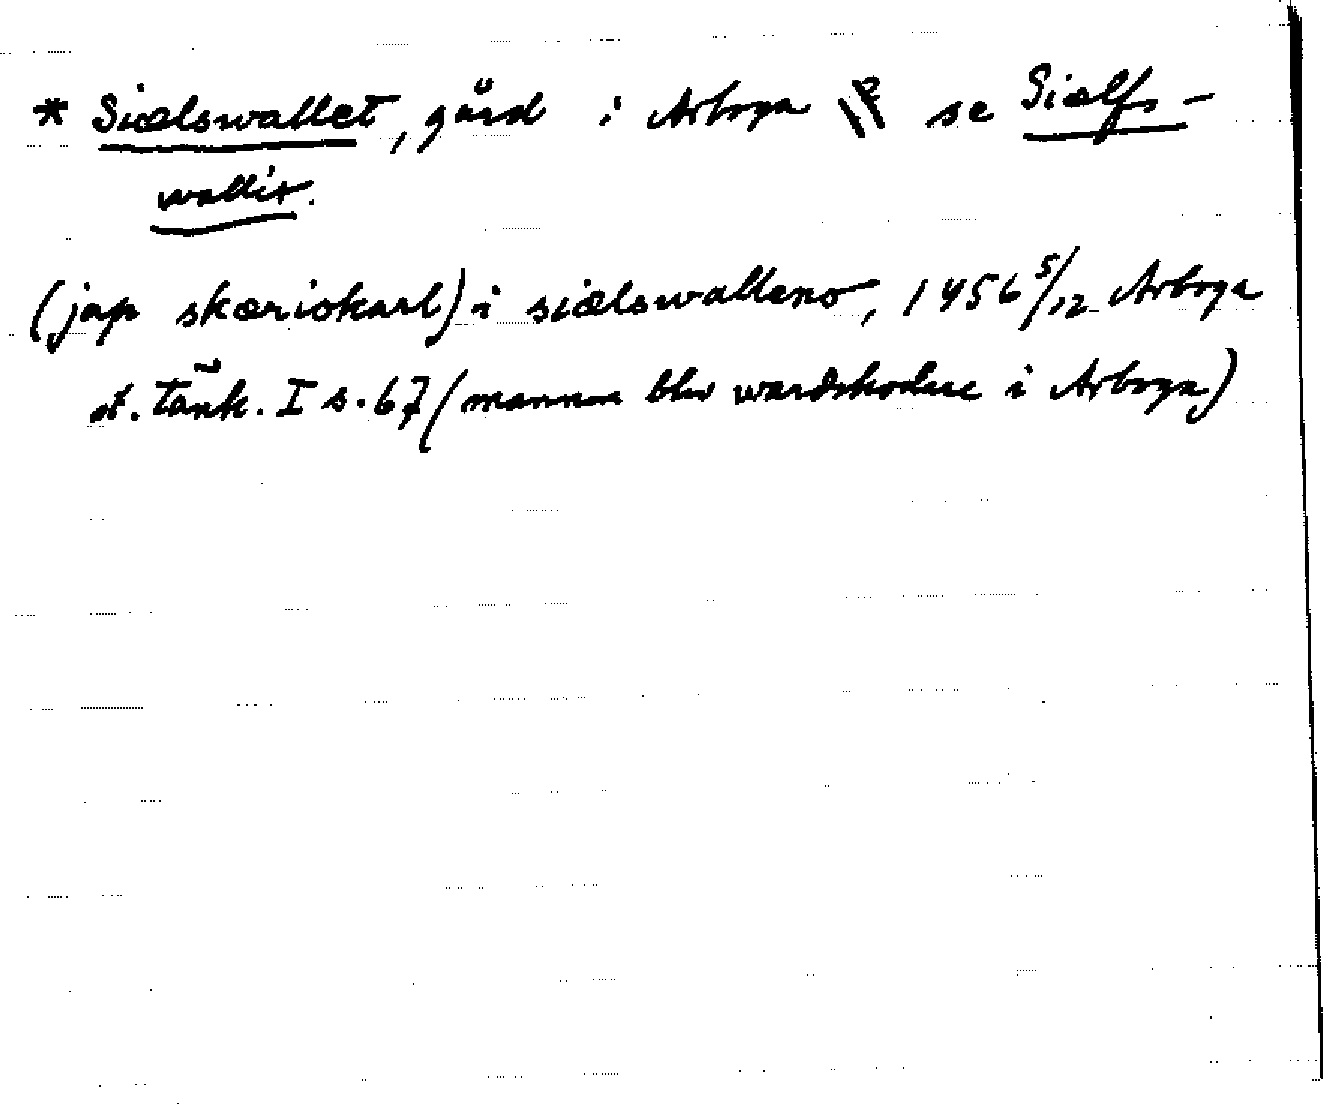 * Siælswallet, gård i Arboga se Siælfs-
wallit.
(jap skæriokarl) i siælswalleno, 1456 5/12 Arboga
st. tänk. I s. 67 (mannen blev wardskodare i Arboga)